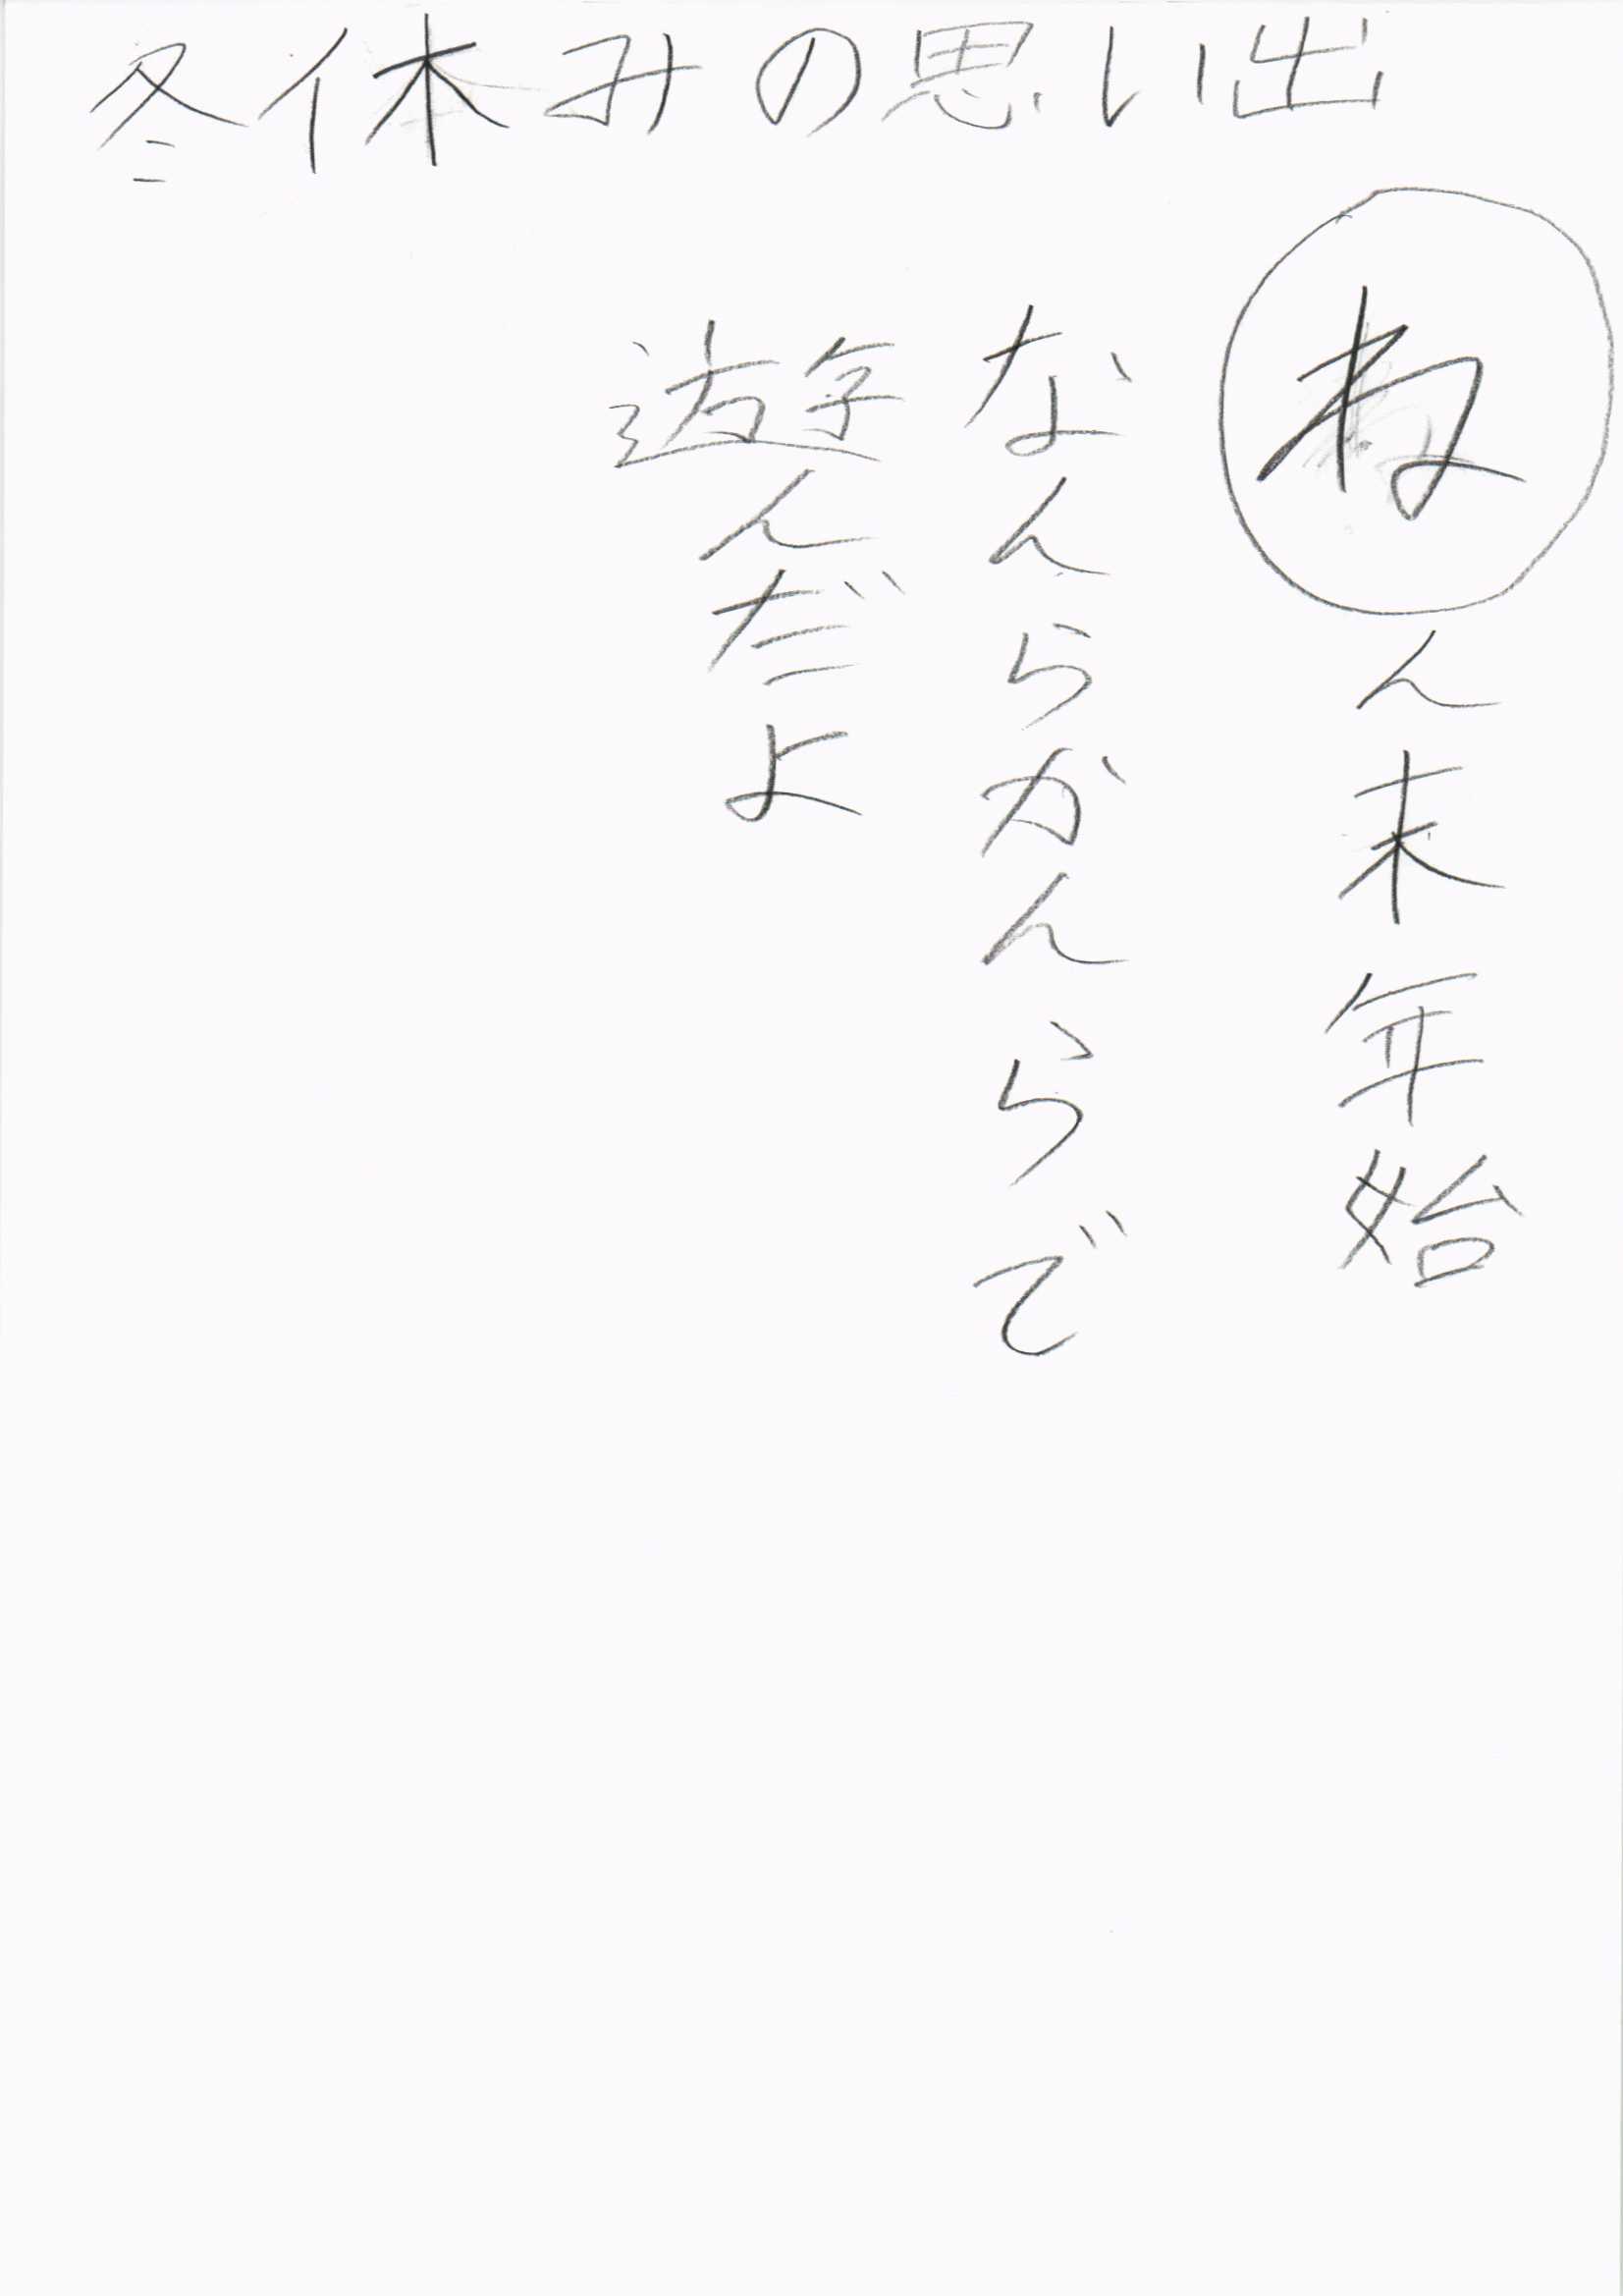 冬休みの思い出
ねん末年始
なんらかんらで
遊んだよ